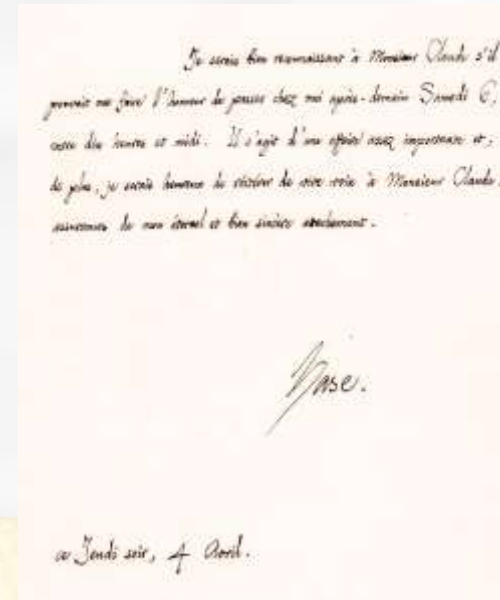 Je serais bien reconnaissant à Monsieur Claude s'il
pouvait me faire l'honneur de passer chez moi après-demain Samedi 6,
entre dix heures et midi. Il s'agit d'une affaire assez importante et,
de plus, je serais heureux de réitérer de vive voix à Monsieur Claude
assurances de mon éternel et bien sincère attachement.
ce Jeudi soir, 4 Avril.